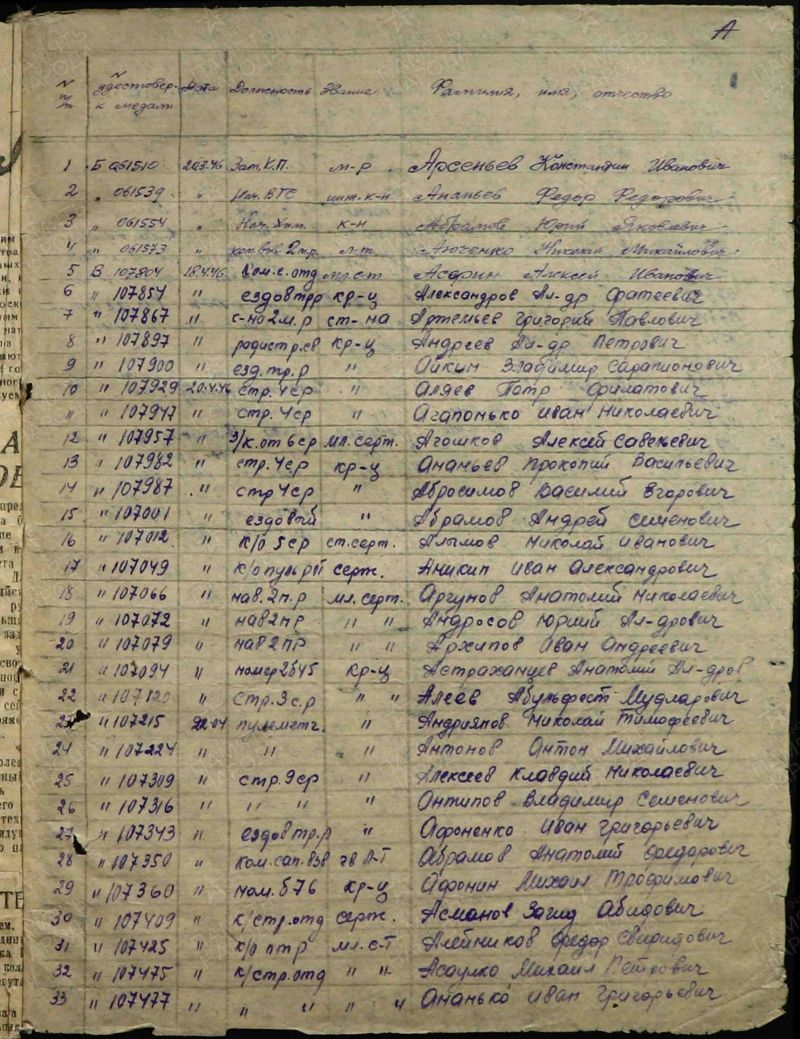 А
N п/п N удостовер. к медали Дата Должность Звание Фамилия, имя, отчество
1 Б 061510 20.3.46 Зам.К.П. м-р Арсеньев Константин Иванович
2 " 061539 " Нач. ВТС инж. к-н Ананьев Федор Федорович
3 " 061554 " Нач. хим. к-н Абрамов Юрий Яковлевич
4 " 061573 " ком.взв. 2 тр. л-т Николай Михайлович
5 В 107804 18.4.46 ком.с.отд мл.с-т Асафин Алексей Иванович
6 " 107854 " ездов тр.р кр-ц Александров Ал-др Фатеевич
7 " 107867 " с-на 2 м.р ст-на Артемьев Григорий Павлович
8 " 107897 " радист р.св кр-ц Андреев Ал-др Петрович
9 " 107900 " езд.тр.р " Айкин Владимир Сарапионович
10 " 107929 20.4.46 стр.4ср " Аляев Петр Филатович
" " 107947 " стр.4ср " Агапонько Иван Николаевич
12 " 107957 " з/к.от 6ср мл.серж. Агошков Алексей Савельевич
13 " 107982 " стр.4ср кр-ц Ананьев Прокопий Васильевич
14 " 107987 " стр 4ср " Абросимов Василий Егорович
15 " 107001 " ездовый " Абрамов Андрей Семенович
16 " 107012 " к/о 5ср ст.серж. Алымов Николай Иванович
17 " 107049 " к/о пуль рй серж. Аникин Иван Александрович
18 " 107066 " нав.2п.р мл.серж. Аргунов Анатолий Николаевич
19 " 107072 " нав 2пр " " Андросов Юрий Ал-дрович
20 " 107079 " нав 2пр " " Архипов Иван Андреевич
21 " 107094 " номер 2б45 кр-ц Астраханцев Анатолий Ал-дров
22 " 107120 " стр.3с.р " " Алеев Абульфост Мудларович
23 " 107215 22.04 пулеметч. " Андриянов Николай Тимофеевич
24 " 107224 " " " Антонов Антон Михайлович
25 " 107309 " стр.9ср " Алексеев Клавдий Николаевич
26 " 107316 " " " " Антипов Владимир Семенович
27 " 107343 " ездов тр.р " Афоненко Иван Григорьевич
28 " 107350 " ком.сап.взв гв Л-Т Абрамов Анатолий Федорович
29 " 107360 " ном.б76 кр-ц Афонин Михаил Трофимович
30 " 107409 " к/стр.отд серж. Асманов Загид Абидович
31 " 107425 " к/о птр мл.с-т Алейников Федор Свиридович
32 " 107475 " к/стр.отд " " Асаулко Михаил Петрович
33 " 107477 " " " " " Ананько Иван Григорьевич